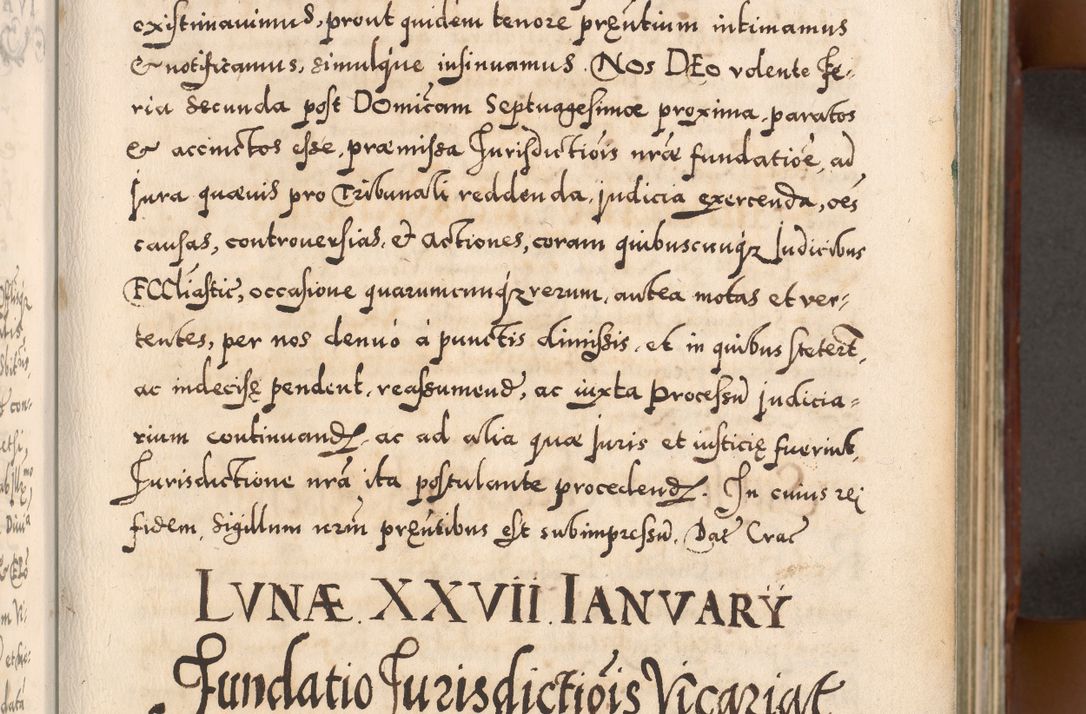 existimauimus, prout quidem tenore pręntium intimamus
& notificamus, simulque insinuamus. Nos DEo volente Fe-
ria Secunda post Domicam Septuagesimæ proxima, paratos
& accinctos esse, præmissa Jurisdictiois nræ fundatioe, ad
Jura quæuis pro Tribunali reddenda, judicia exercenda, oes
causas, controuersias, et Actiones, coram quibuscunqz Judicibus
ECCliastic, occasione quarumcunqz rerum, antea motas et ver-
tentes, per nos denuo à punctis dimissis, et in quibus stetert,
ac indecisę pendent, reassumend, ac iuxta Processu judicia-
rium continuand, ac ad alia quæ Juris et iusticię fuerint,
Jurisdictione nra ita postulante procedend. In cuius rei
fidem, Sigillum nrm pręntibus est subimpressu. Dat Crac
LVNÆ. XXVII. IANVARY
Fundatio Jurisdictiois Vicariat